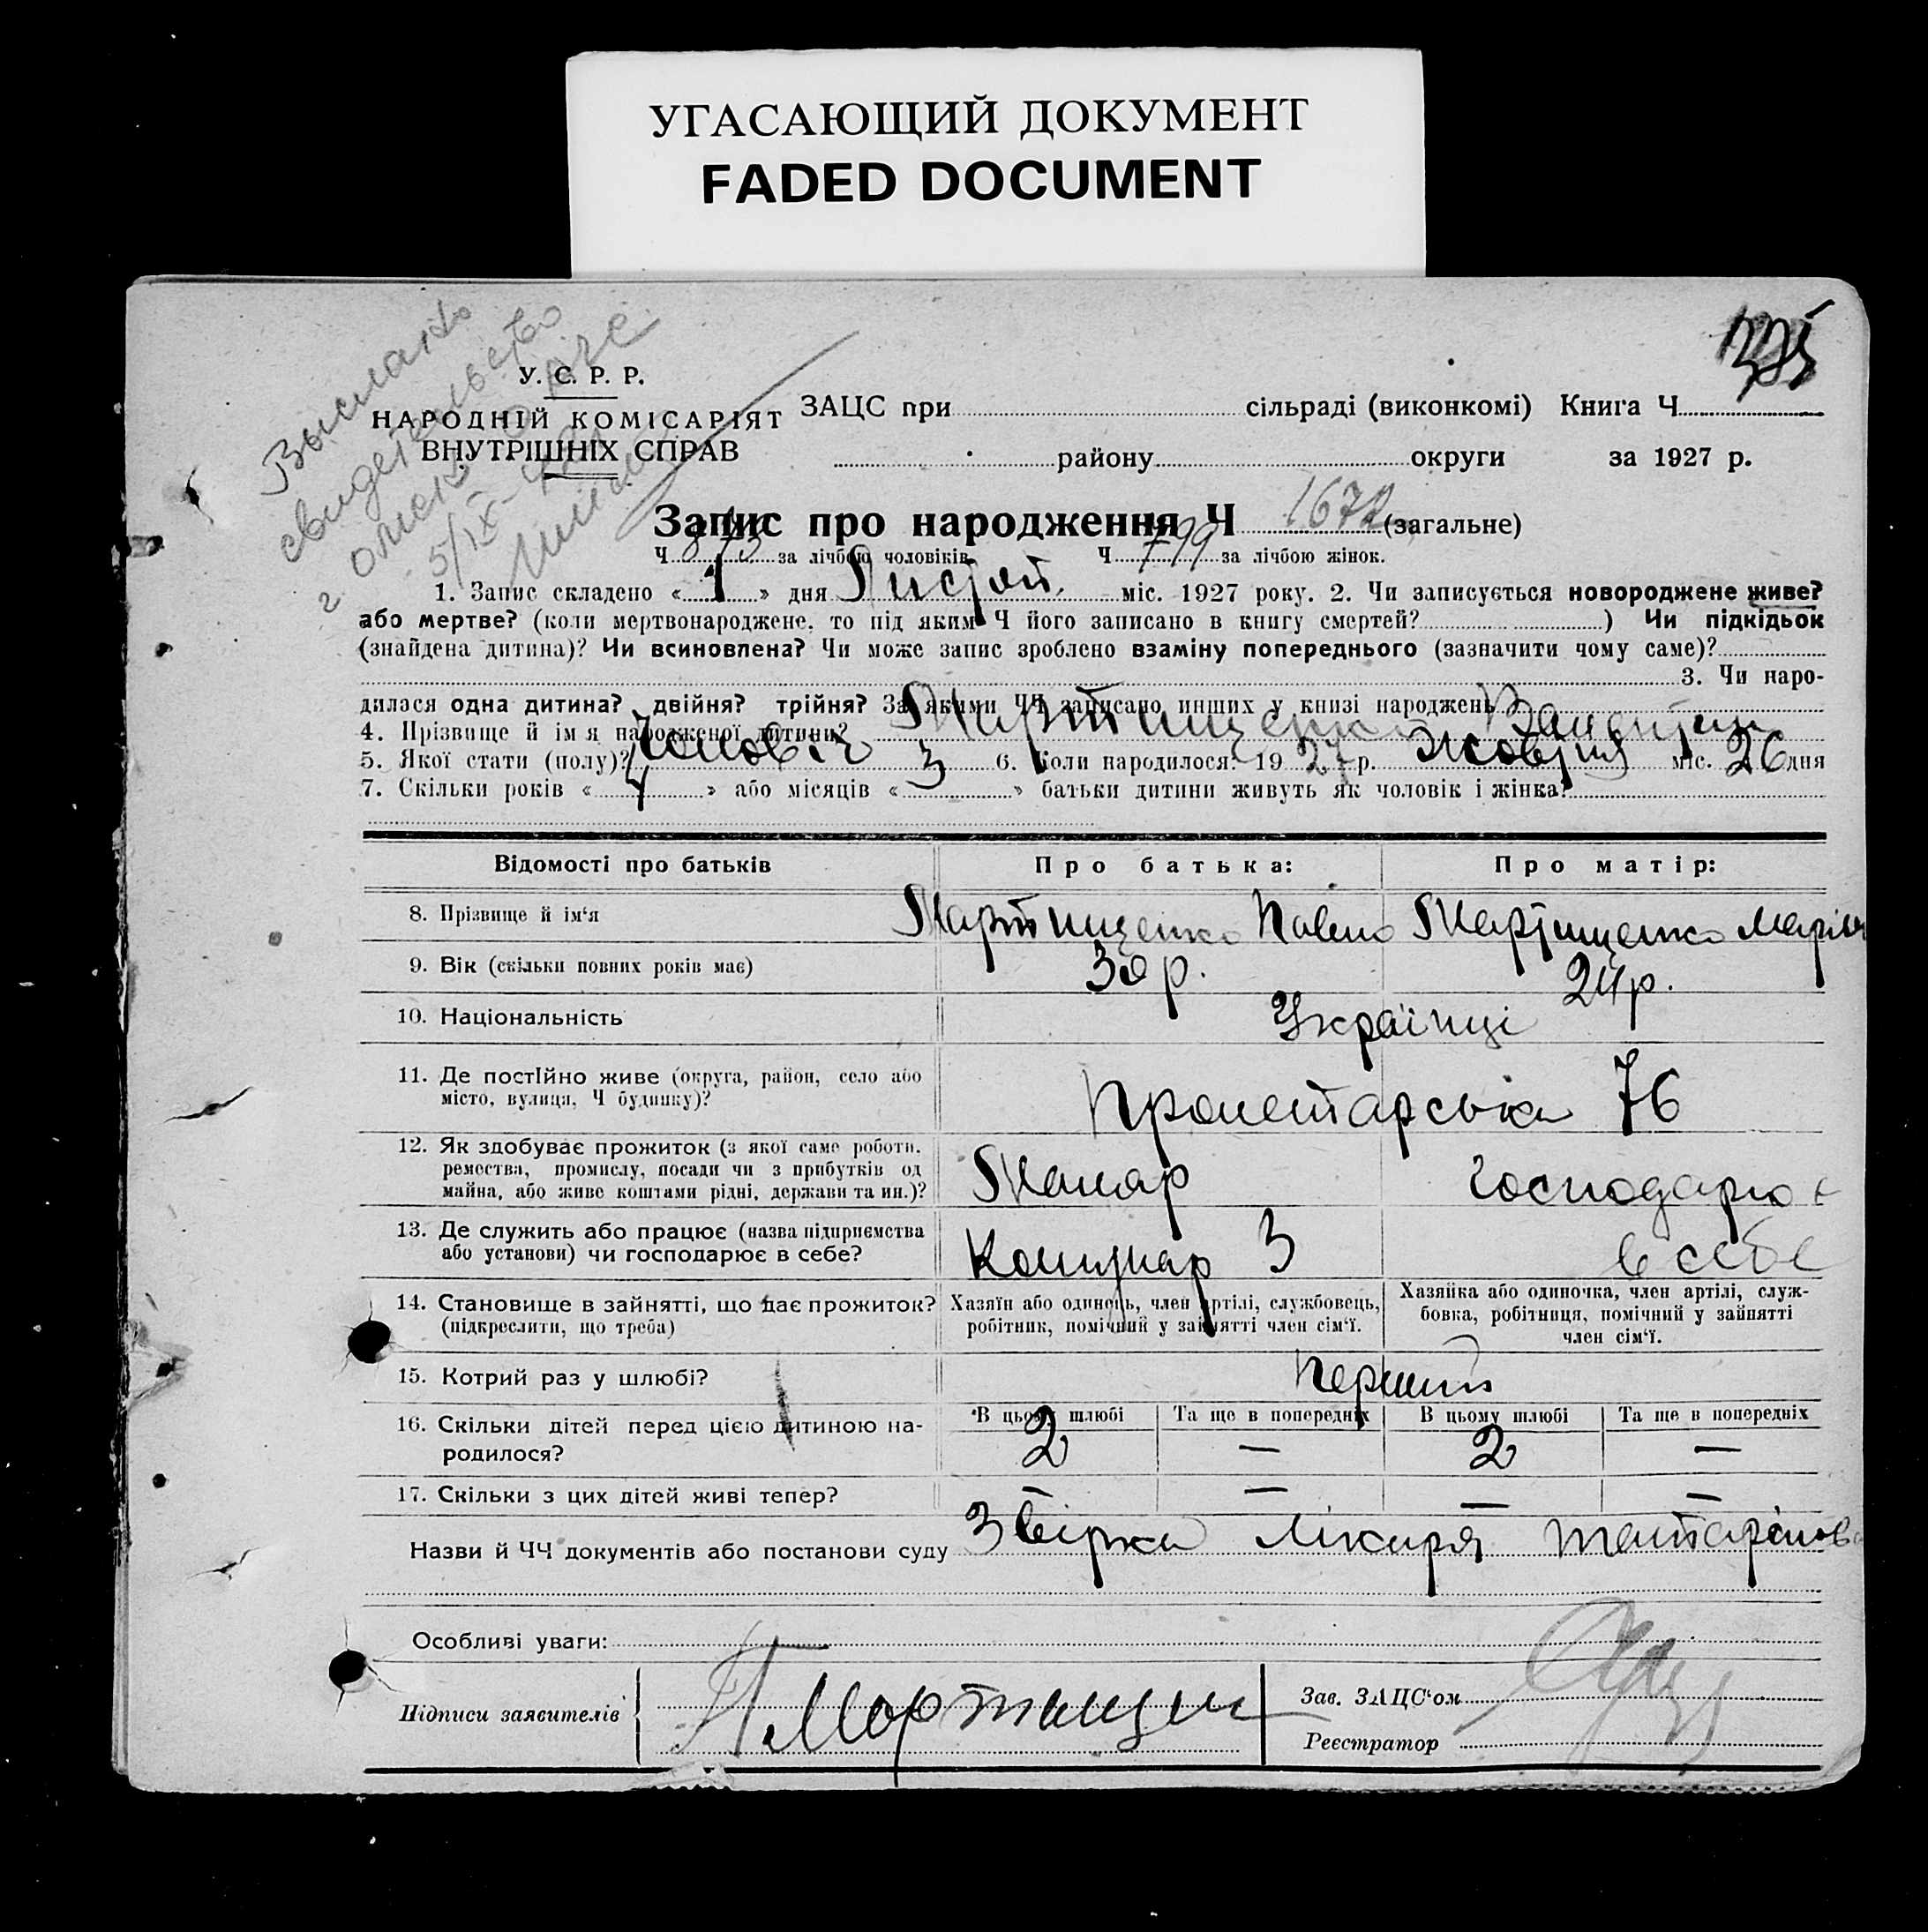 УГАСАЮЩИЙ ДОКУМЕНТ
FADED DOCUMENT
Выслано
свидетельство
г Омск ЗАГС
5/IX-
У. С. Р. Р.
НАРОДНІЙ КОМІСАРІЯТ
ВНУТРІШНІХ СПРАВ
ЗАЦС при сільраді (виконкомі) Книга Ч
району округи за 1927 р.
Запис про народження Ч 1672 (загальне)
Ч 873 за лічбою чоловіків Ч 799 за лічбою жінок.
1. Запис складено «1» дня Листоп. міс. 1927 року. 2. Чи записується новороджене живе?
або мертве? (коли мертвонароджене, то під яким Ч його записано в книгу смертей? ) Чи підкідьок
(знайдена дитина)? Чи всиновлена? Чи може запис зроблено взаміну попереднього (зазначити чому саме)?
3. Чи наро-
дилася одна дитина? двійня? трійня? За якими ЧЧ записано инших у книзі народжень
4. Прізвище й імя народженої дитини? Мартищенко
5. Якої стати (полу)? Чоловіч 3 6. Коли народилося: 1927 р. Жовтня міс. 26 дня
7. Скільки років «4» або місяців « » батьки дитини живуть як чоловік і жінка?
Відомості про батьків Про батька: Про матір:
8. Прізвище й ім'я Мартищенко Павло Мартищенко Марія
9. Вік (скільки повних років має) 30 р. 24 р.
10. Національність Українці
11. Де постІйно живе (округа, район, село або
місто, вулиця, Ч будинку)? Пролетарська 76
12. Як здобуває прожиток (з якої саме роботи,
ремества, промислу, посади чи з прибутків од
майна, або живе коштами рідні, держави та ин.)? Маляр Господарює
13. Де служить або працює (назва підприємства
або установи) чи господарює в себе? Комунар 3 в себе
14. Становище в зайнятті, що дає прожиток?
(підкреслити, що треба)
Хазяїн або одинець, член артілі, службовець,
робітник, помічний у зайнятті член сім'ї.
Хазяйка або одиночка, член артілі, служ-
бовка, робітниця, помічний у зайнятті
член сім'ї.
15. Котрий раз у шлюбі? Перший
16. Скільки дітей перед цією дитиною на-
родилося?
В цьому шлюбі Та ще в попередніх В цьому шлюбі Та ще в попередніх
2 — 2 —
17. Скільки з цих дітей живі тепер? — — — —
Назви й ЧЧ документів або постанови суду Звірка лікаря Татарінова
Особливі уваги:
Підписи заявителів П Мартищен
Зав. ЗАЦС'ом
Реєстратор